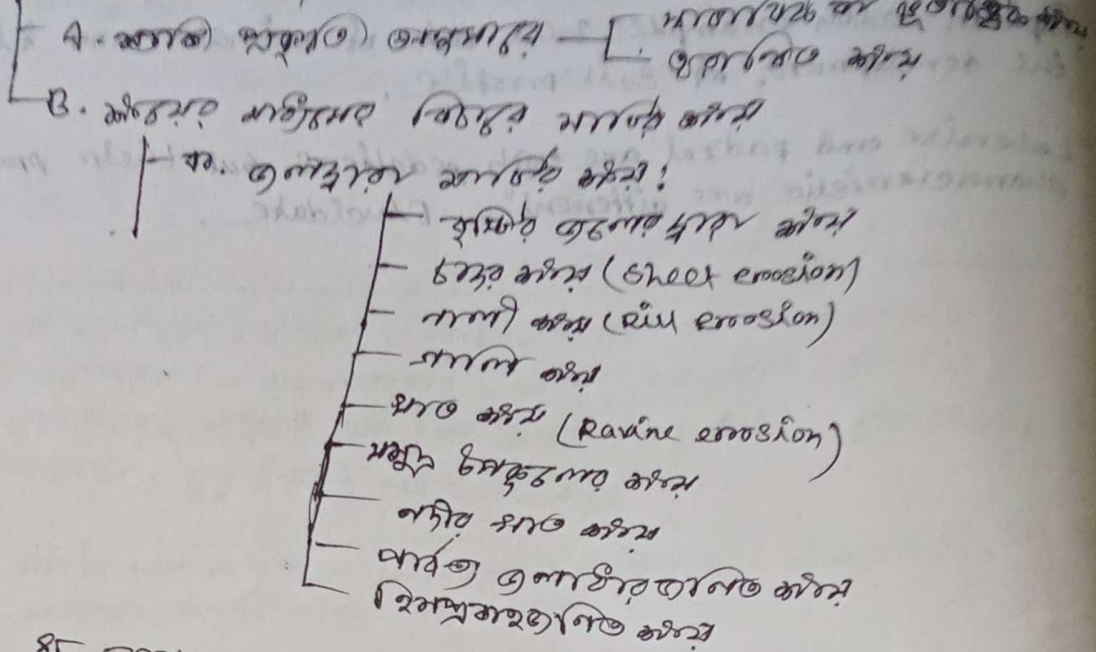 A. ক্ষয়ের প্রকৃতি অনুসারে
ত্বরান্বিত ক্ষয়
B. ক্ষয়ের মাধ্যমের বিচারে মাটির ক্ষয়
ক. জলদ্বারা মাটির ক্ষয়:
বৃষ্টির জলের দ্বারা ক্ষয়
চাদর ক্ষয় (Sheet erosion)
নালী ক্ষয় (Rill erosion)
গালি ক্ষয়
খাত ক্ষয় (Ravine erosion)
সমুদ্র উপকূলের ক্ষয়
নদীর খাত ক্ষয়
পার্বত্য জলধারাজনিত ক্ষয়
হিমপ্রবাহজনিত ক্ষয়